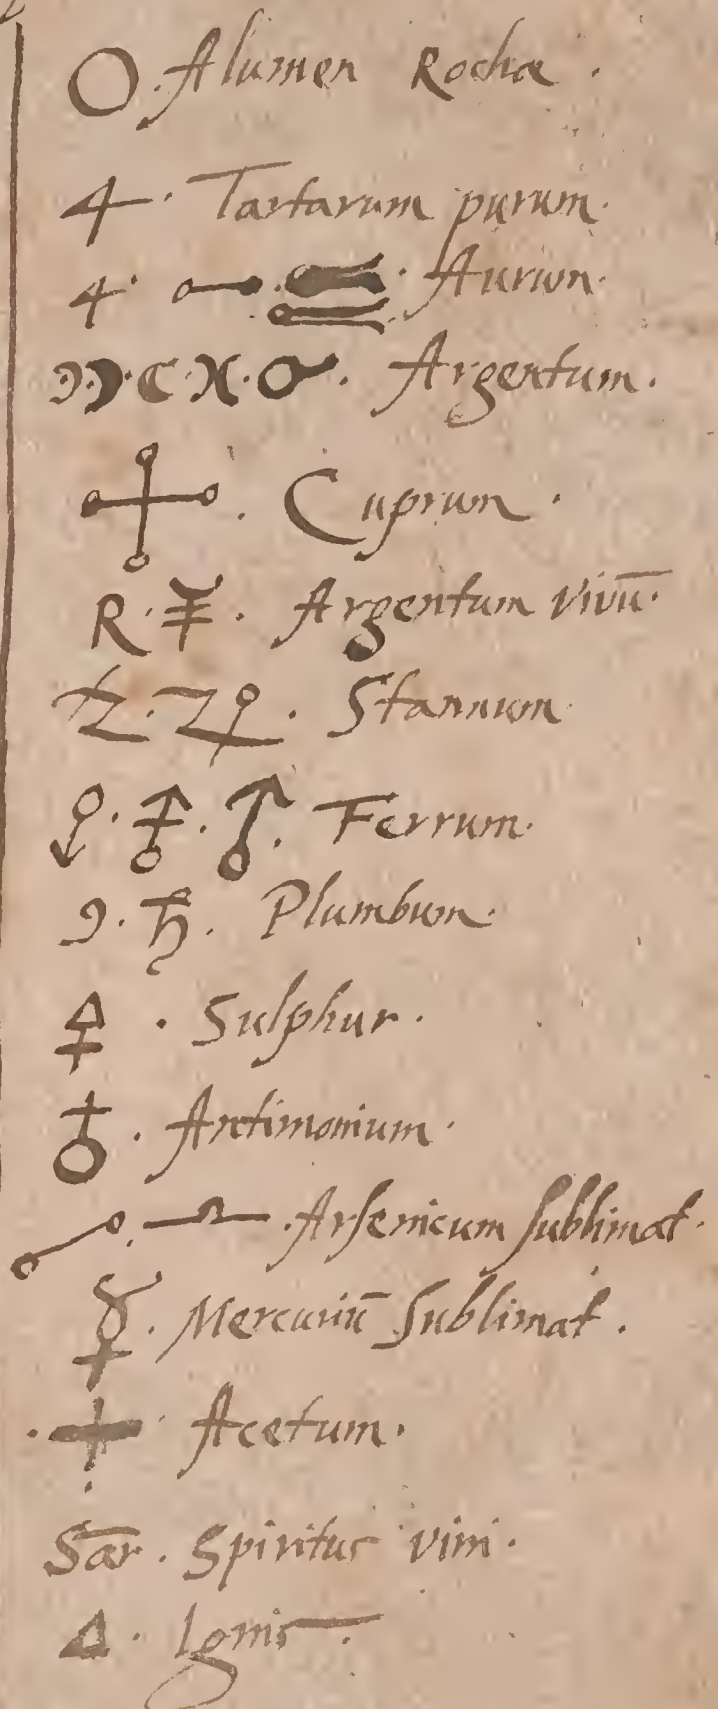 Alumen Rochæ.
4. Tartarum purum.
4. Aurum.
Argentum.
Cuprum.
R. Argentum vivū.
Stannum.
Ferrum.
♄. Plumbum.
Sulphur.
Antimonium.
Arsenicum sublimat.
Mercuriū Sublimat.
Acetum.
Sār. Spiritus vini.
△. Ignis.